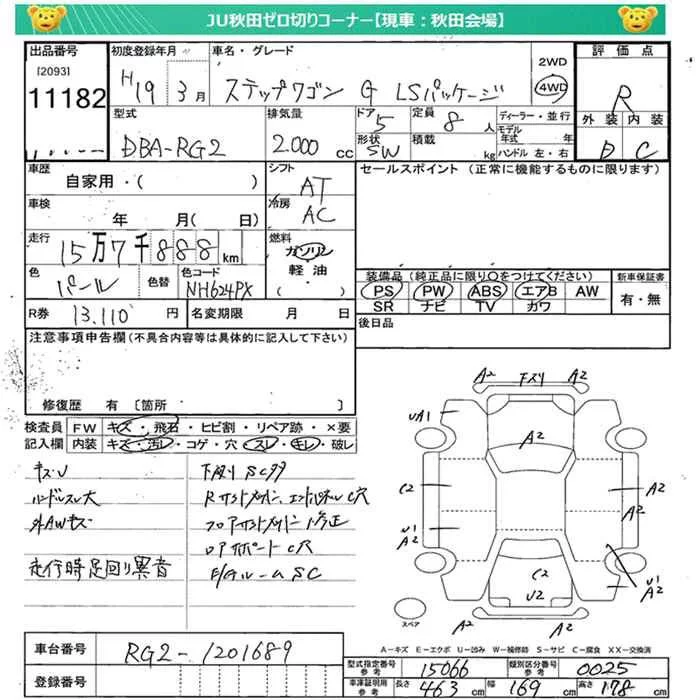 JU秋田ゼロ切りコーナー【現車：秋田会場】
出品番号 初度登録年月 車名・グレード 2WD 評価点
[2093] H19 3月 ステップワゴン G LSパッケージ 4WD R
11182 型式 排気量 ドア 定員 ディーラー・並行 外装 内装
5 8人 モデル年式 年
DBA-RG2 2.000cc 形状 SW 積載 kg ハンドル 左・右 D C
車歴 シフト セールスポイント（正常に機能するものに限ります）
自家用・（ ） AT
車検 年 月（ 日） 冷房 AC
走行 燃料
15万7千888km ガソリン
軽油
色 パール 色替 色コード NH624PX （ ） 装備品（純正品に限り○をつけてください） 新車保証書
PS PW ABS エアB AW 有・無
SR ナビ TV カワ
R券 13.110円 名変期限 月 日 後日品
注意事項申告欄（不具合内容等は具体的に記入して下さい）
修復歴 有〔箇所 〕
検査員 FW キズ・飛石・ヒビ割・リペア跡・×要
記入欄 内装 キズ・汚レ・コゲ・穴・スレ・キレ・破レ
キズU 下廻りSC多
ハンドルスレ大
外AWキズ
走行時足回り異音
A2 下スリ A2
UA1
A2
C2 A2
U1 A2
A2
C2 U1
U2 A2
A2 A2
スペア
A－キズ E－エクボ U－凹み W－補修跡 S－サビ C－腐食 XX－交換済
車台番号 RG2-1201689
登録番号
型式指定番号 参考 15066 類別区分番号 参考 0025
車庫証明用 参考 長さ 463cm 幅 169cm 高さ 178cm